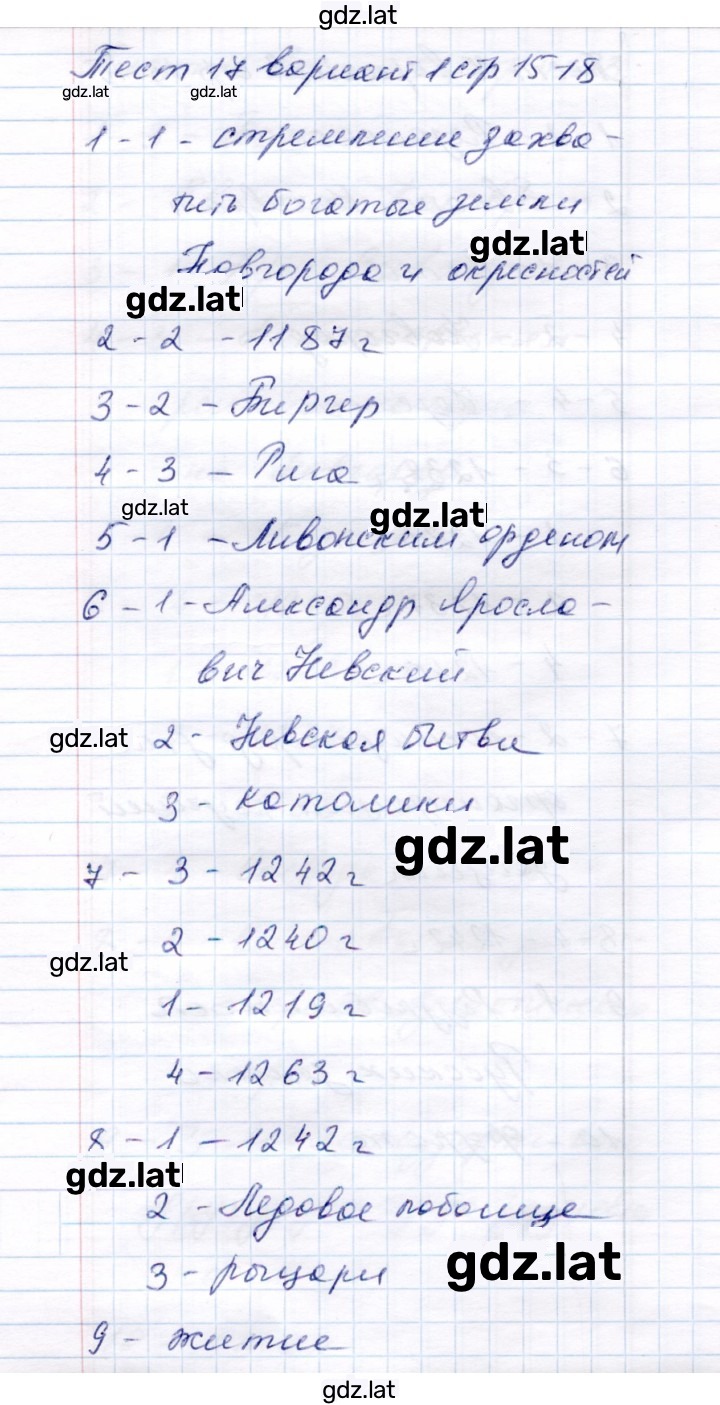 gdz.lat
Тест 17 вариант 1 стр 15-18
gdz.lat gdz.lat
1 - 1 - стремление захва-
тить богатые земли
gdz.lat
Новгорода и окресностей
gdz.lat
2 - 2 - 1187 г
3 - 2 - Биргер
4 - 3 - Рига
gdz.lat gdz.lat
5 - 1 - Ливонским орденом
6 - 1 - Александр Яросла-
вич Невский
gdz.lat 2 - Невская битва
3 - католики
gdz.lat
7 - 3 - 1242 г
2 - 1240 г
gdz.lat
1 - 1219 г
4 - 1263 г
8 - 1 - 1242 г
gdz.lat
2 - Ледовое побоище
3 - рыцари
gdz.lat
9 - житие
gdz.lat